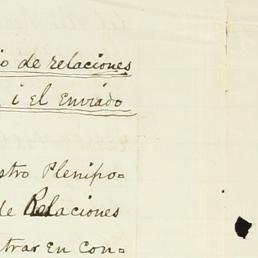 io de relaciones
i el Enviado
stro Plenipo-
de Relaciones
trar en con-